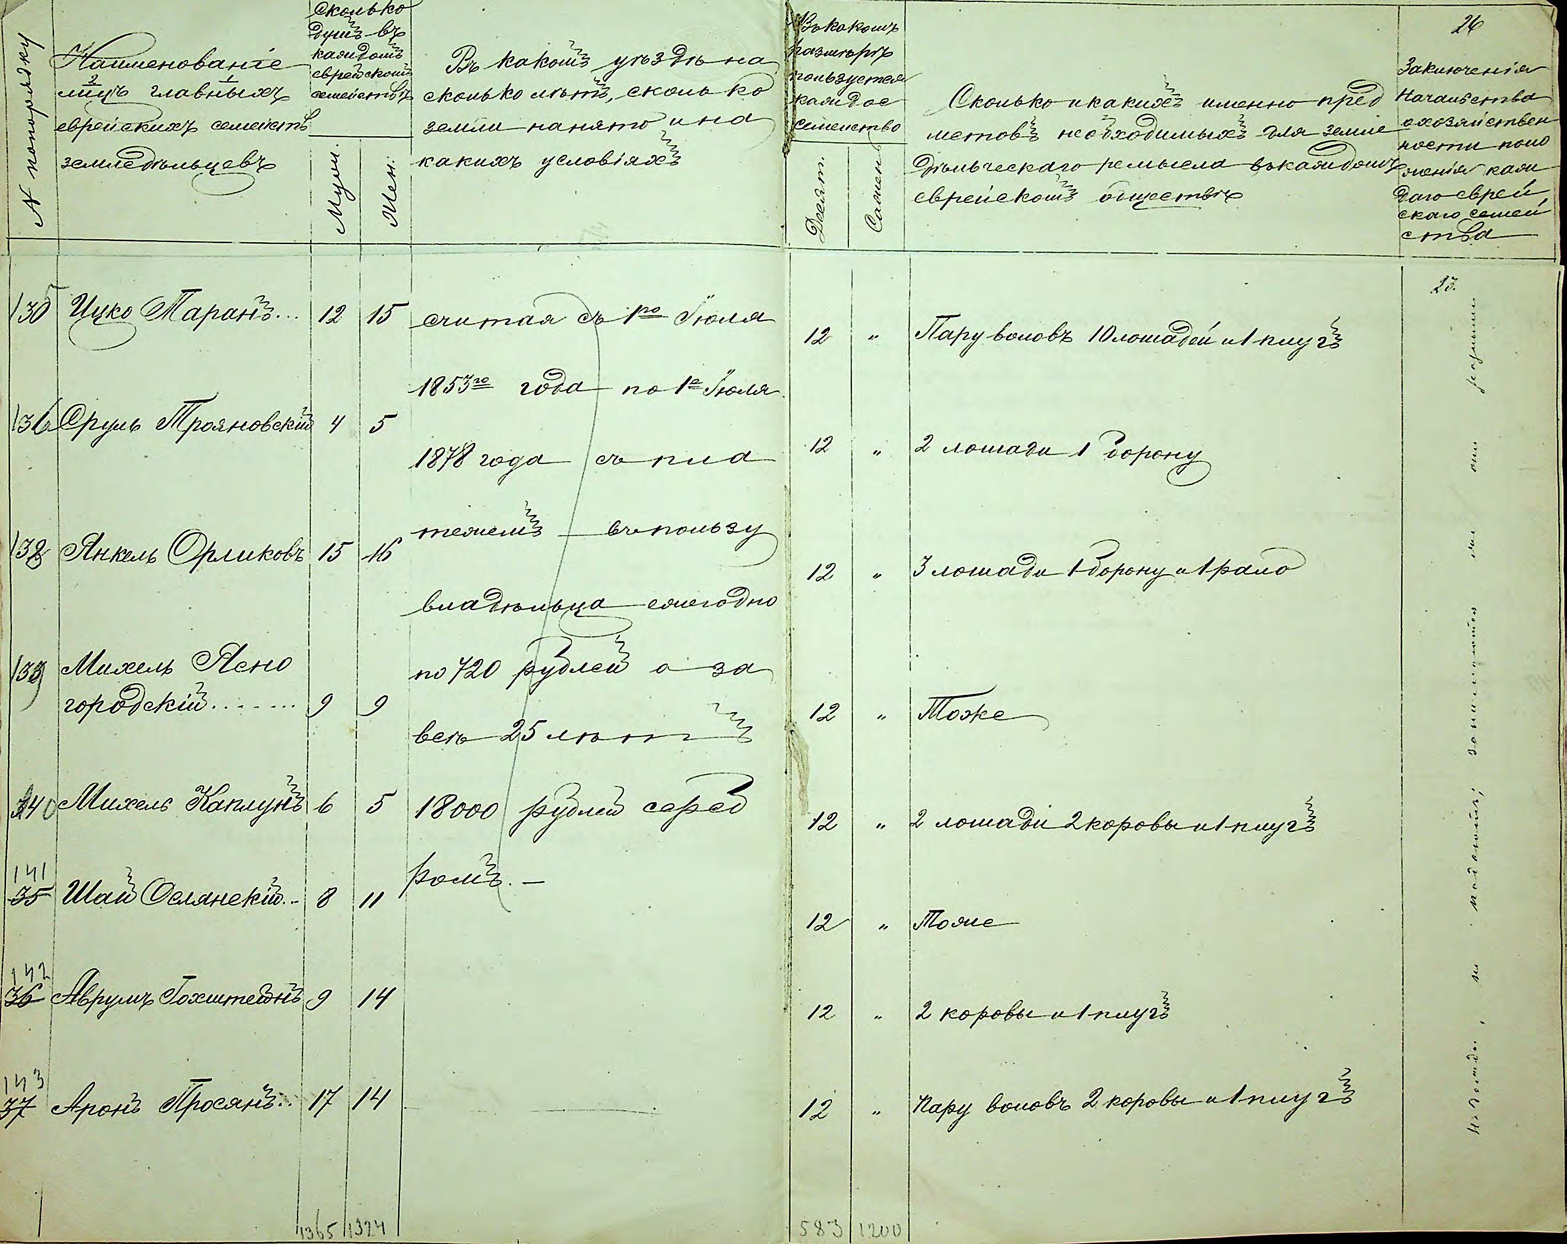 26
N попорядку
Наименованіе
2 1
лицъ главныхъ
еврейскихъ семействъ
земледѣльцевъ
Сколько
душъ въ
каждомъ
еврейскомъ
семействѣ
Муж.
Жен.
Въ какомъ уѣздѣ на
сколько лѣтъ, сколько
земли нанято и на
какихъ условіяхъ
Въ какомъ
размѣрѣ
пользуется
каждое
семейство
Десят.
Сажень
Сколько и какихъ именно пред
метовъ необходимыхъ для земле
дѣльческаго ремысела въ каждомъ
еврейскомъ обществѣ
Заключенія
Начальства
о хозяйствен
ности поло
женія каж
даго еврей
скаго семей
ства
135 Ицко Таранъ... 12 15
136 Сруль Трояновскій 4 5
138 Янкель Орликовъ 15 16
139 Михель Ясно
городскій....... 9 9
140 Михель Каплунъ 6 5
141
35 Шай Селянскій.. 8 11
142
36 Аврумъ Гохштейнъ 9 14
143
37 Аронъ Просянъ.. 17 14
1365 1324
считая съ 1го Іюля
1853го года по 1е Іюля
1878 года съ пла
тежемъ въ пользу
владѣльца ежегодно
по 720 рублей а за
всѣ 25 лѣтъ
18000 рублей сереб
ромъ. —
12 „ Пару воловъ 10 лошадей и 1 плугъ
12 „ 2 лошади 1 борону
12 „ 3 лошади 1 борону и 1 рало
12 „ Тоже
12 „ 2 лошади 2 коровы и 1 плугъ
12 „ Тоже
12 „ 2 коровы и 1 плугъ
12 „ Пару воловъ 2 коровы и 1 плугъ
583 1200
23.